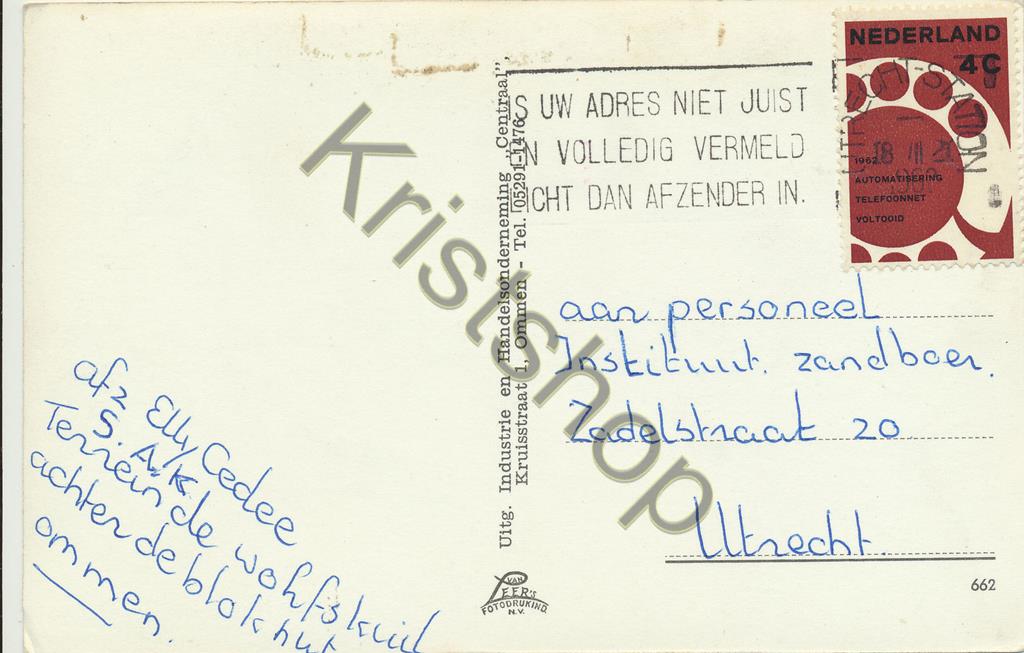 NEDERLAND
4C
UTRECHT-STATION
18 III
1962
AUTOMATISERING
TELEFOONNET
VOLTOOID
S UW ADRES NIET JUIST
N VOLLEDIG VERMELD
ICHT DAN AFZENDER IN.
Uitg. Industrie en Handelsonderneming „Centraal”,
Kruisstraat 1, Ommen - Tel. 05291-1476
Kristshop
aan personeel
Instituut. zandboer.
Zadelstraat 20
Utrecht.
afz Elly Cedee
S. A.K.
Terrein de wohfskuil
achter de blokhut
ommen.
VAN
LEER's
FOTODRUKIND.
N.V.
662